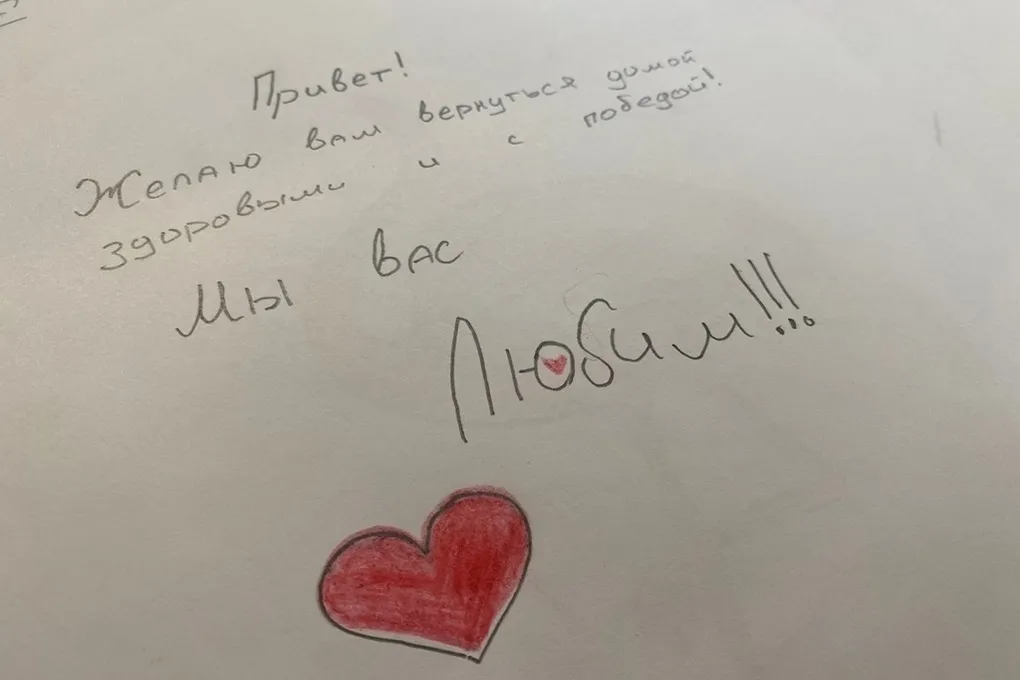 Привет!
Желаю вам вернуться домой
здоровыми и с победой!
Мы вас
Любим!!!